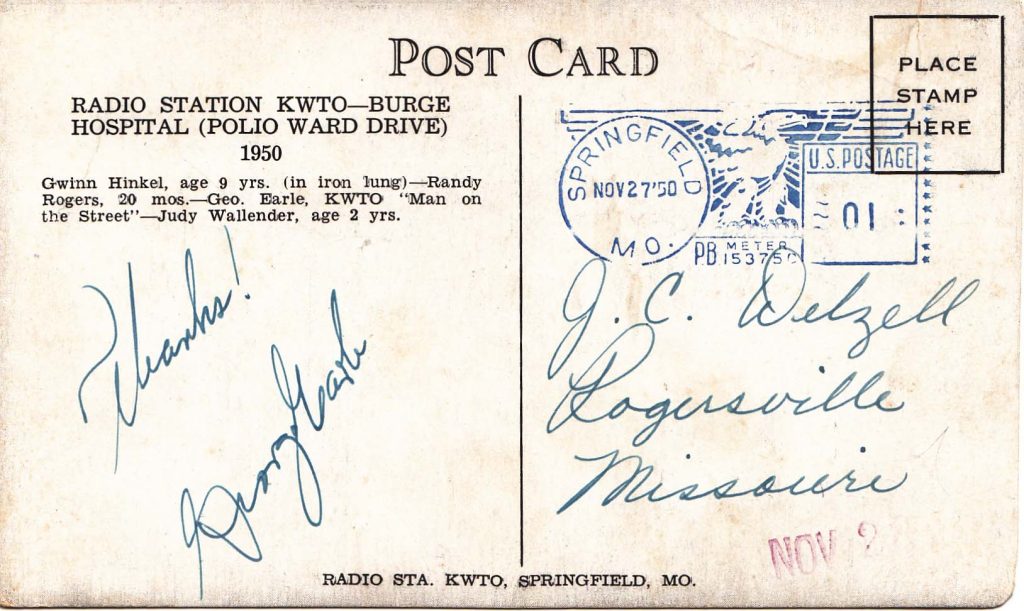 POST CARD
RADIO STATION KWTO—BURGE
HOSPITAL (POLIO WARD DRIVE)
1950
Gwinn Hinkel, age 9 yrs. (in iron lung)—Randy
Rogers, 20 mos.—Geo. Earle, KWTO "Man on
the Street"—Judy Wallender, age 2 yrs.
Thanks!
George Earle
PLACE
STAMP
HERE
SPRINGFIELD
NOV 27 '50
MO.
U.S. POSTAGE
01
P.B. METER
153750
J. C. Welzell
Rogersville
Missouri
NOV 2
RADIO STA. KWTO, SPRINGFIELD, MO.